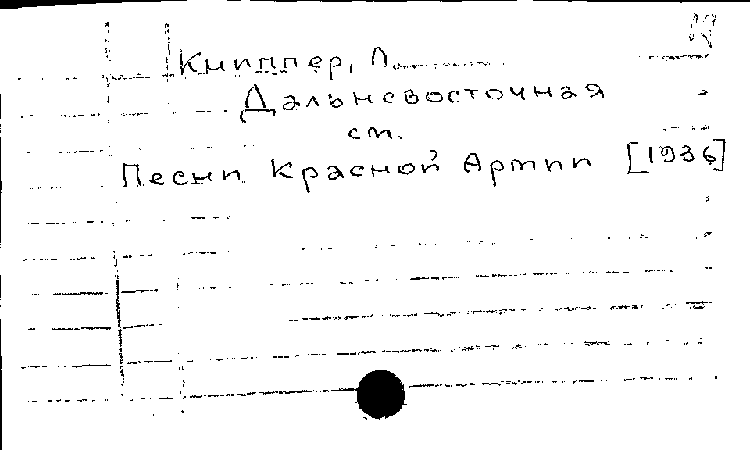 Книппер, Л.
Дальневосточная
см.
Песни Красной Армии [1936]